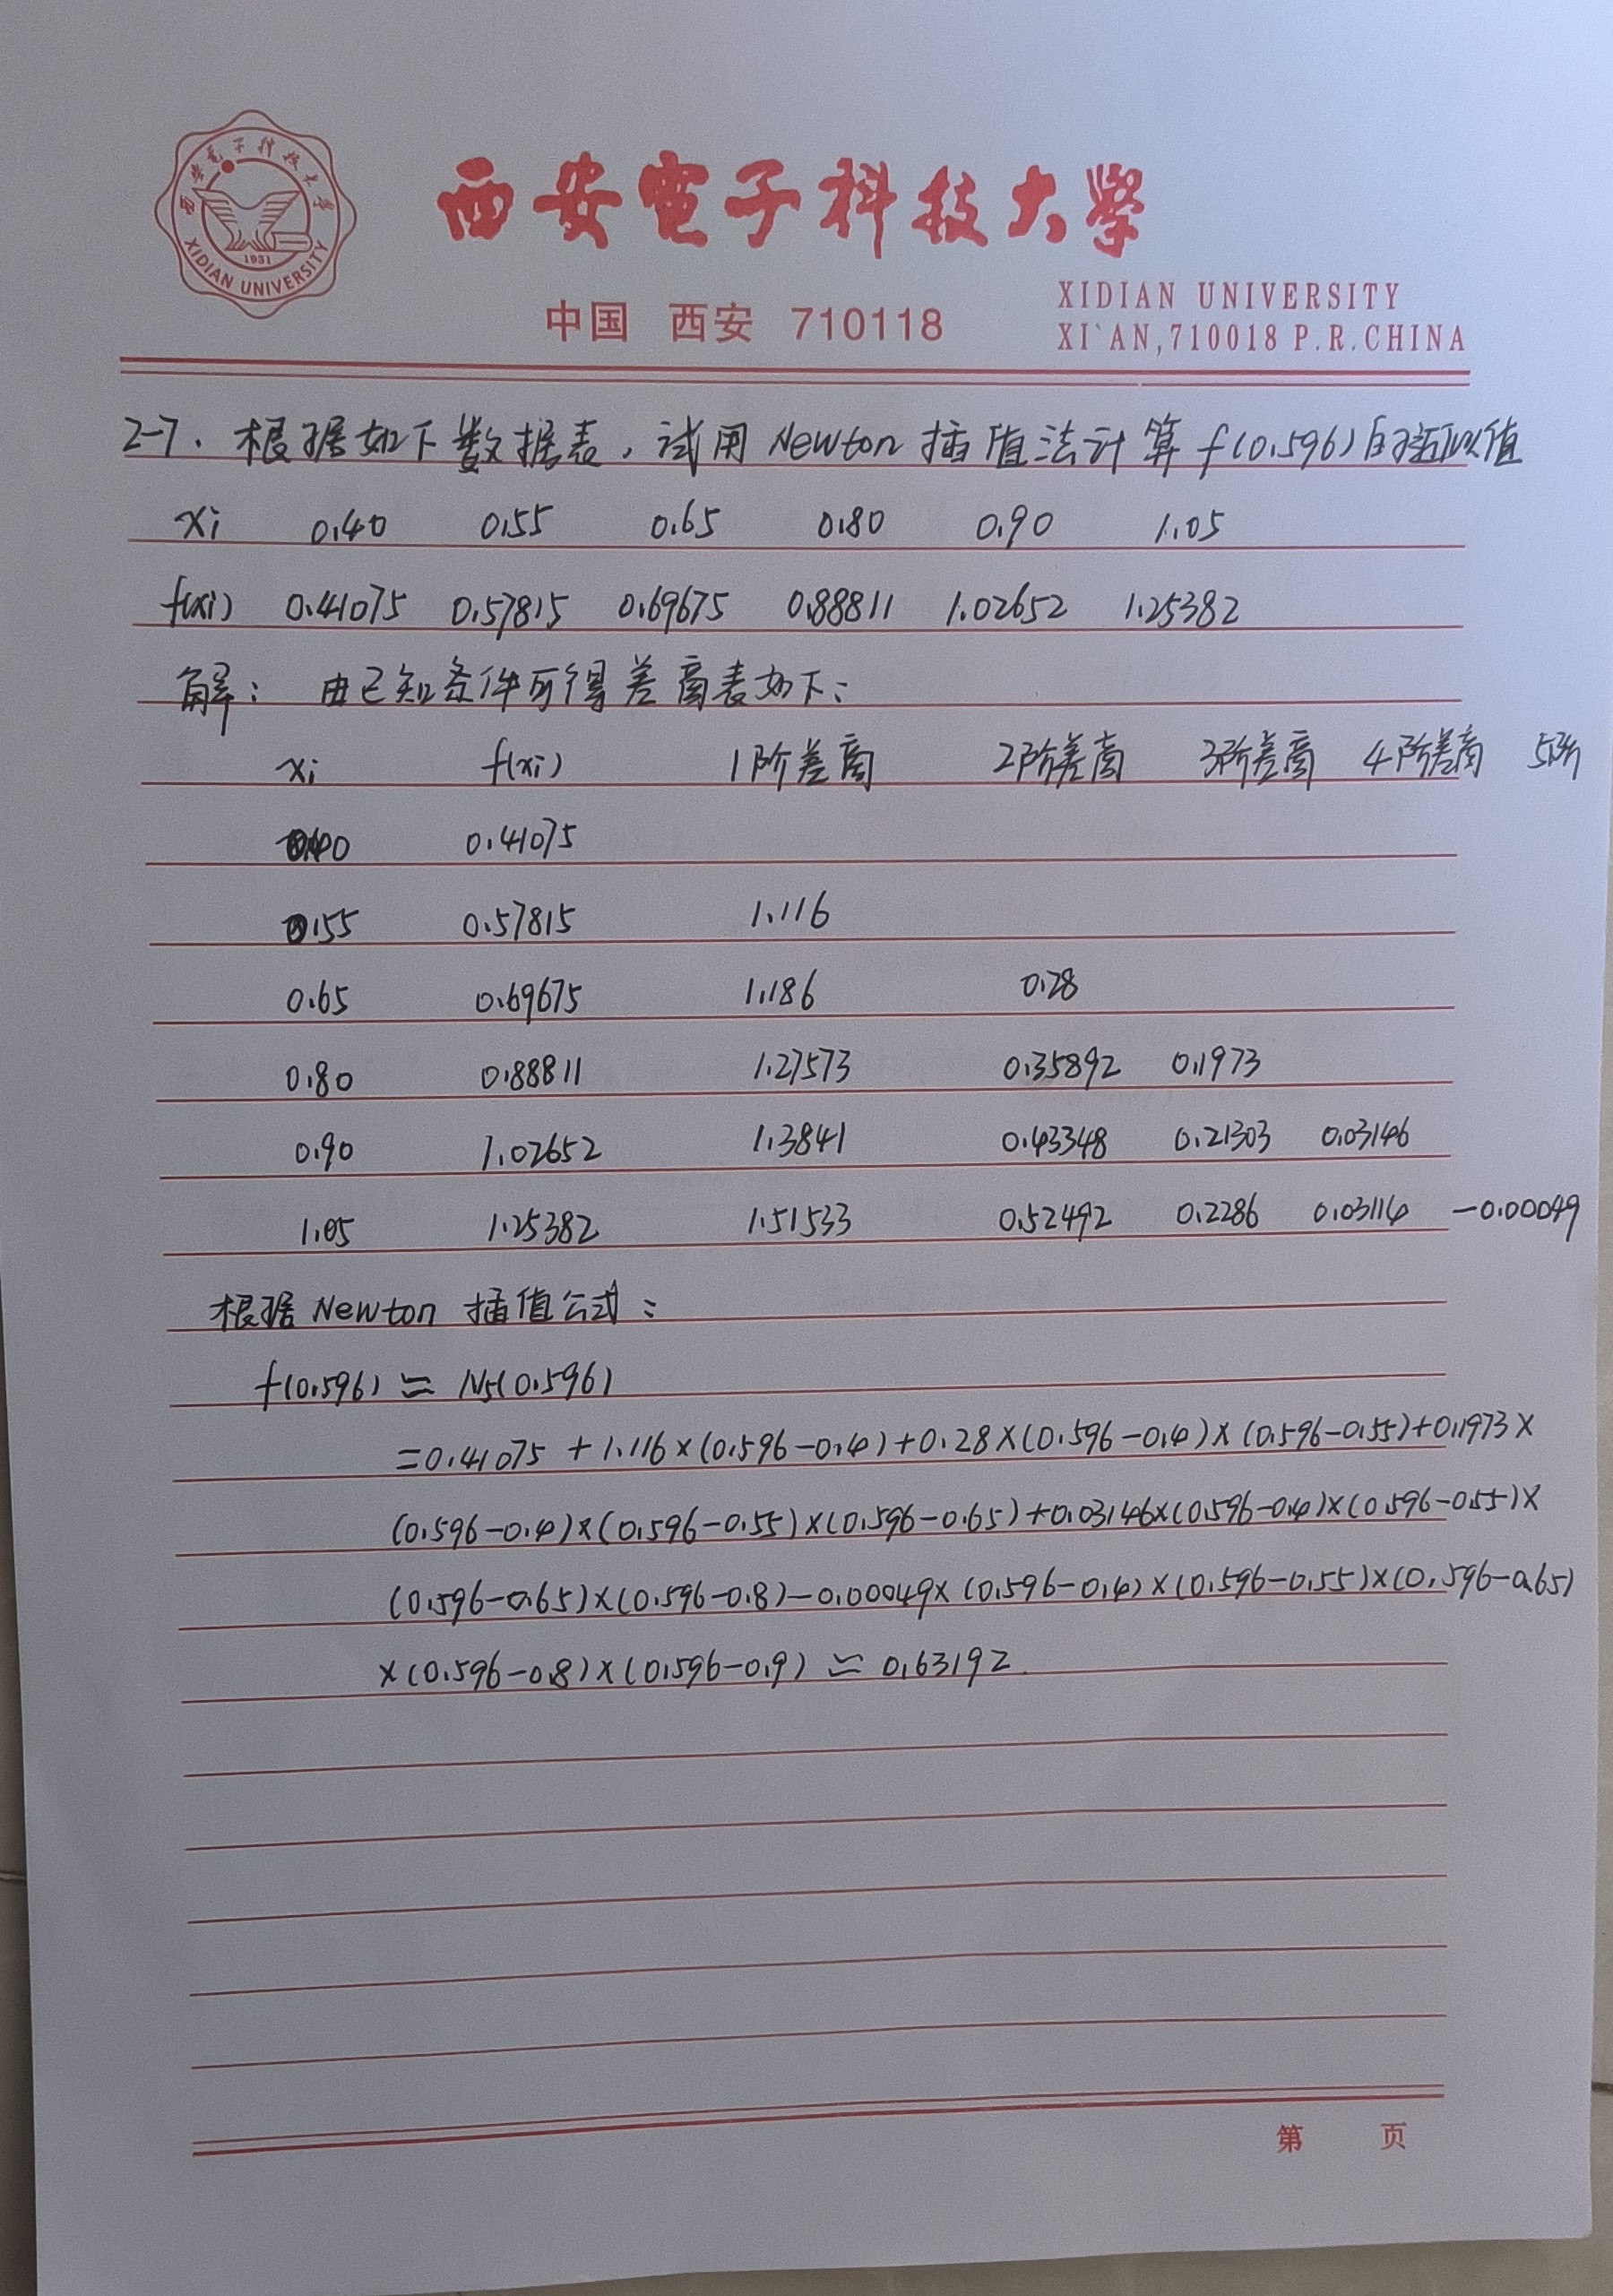 西安电子科技大学
XIDIAN UNIVERSITY
1931
西安電子科技大學
中国 西安 710118
XIDIAN UNIVERSITY
XI`AN,710018 P.R.CHINA
2-7. 根据如下数据表,试用Newton插值法计算f(0.596)的近似值
xi 0.40 0.55 0.65 0.80 0.90 1.05
f(xi) 0.41075 0.57815 0.69675 0.88811 1.02652 1.25382
解: 由已知条件可得差商表如下:
xi f(xi) 1阶差商 2阶差商 3阶差商 4阶差商 5阶
0.40 0.41075
0.55 0.57815 1.116
0.65 0.69675 1.186 0.28
0.80 0.88811 1.27573 0.35892 0.1973
0.90 1.02652 1.3841 0.43348 0.21303 0.03146
1.05 1.25382 1.51533 0.52492 0.2286 0.03114 -0.00049
根据Newton插值公式:
f(0.596) ≈ N5(0.596)
=0.41075 +1.116×(0.596-0.4)+0.28×(0.596-0.4)×(0.596-0.55)+0.1973×
(0.596-0.4)×(0.596-0.55)×(0.596-0.65)+0.03146×(0.596-0.4)×(0.596-0.55)×
(0.596-0.65)×(0.596-0.8)-0.00049×(0.596-0.4)×(0.596-0.55)×(0.596-0.65)
×(0.596-0.8)×(0.596-0.9) ≈ 0.63192
第 页